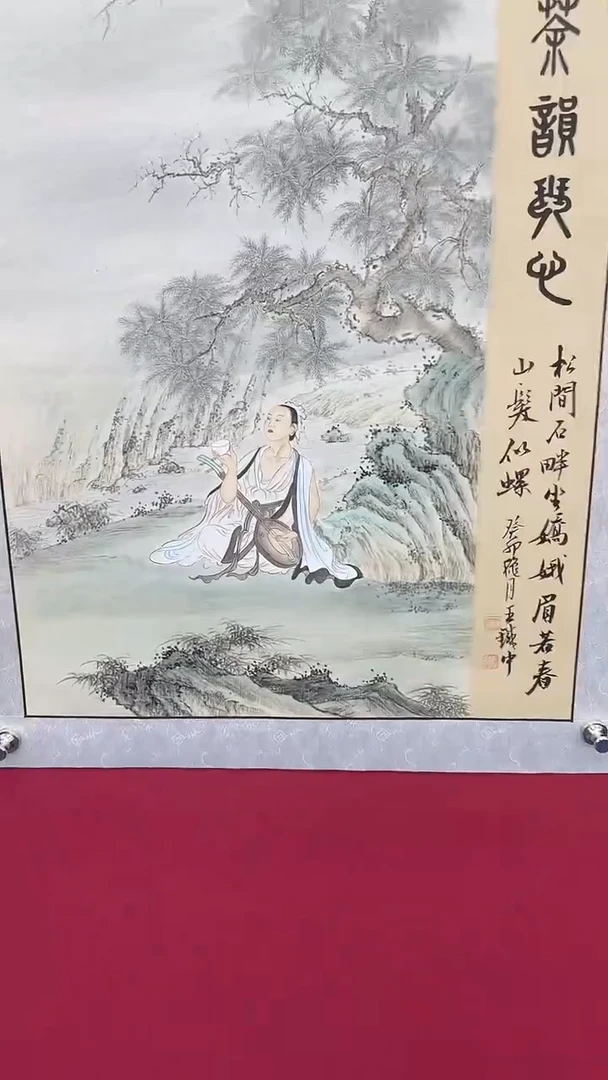 茶韻琴心
松間石畔坐嬌娥眉若春
山髮似螺
癸卯臘月王中